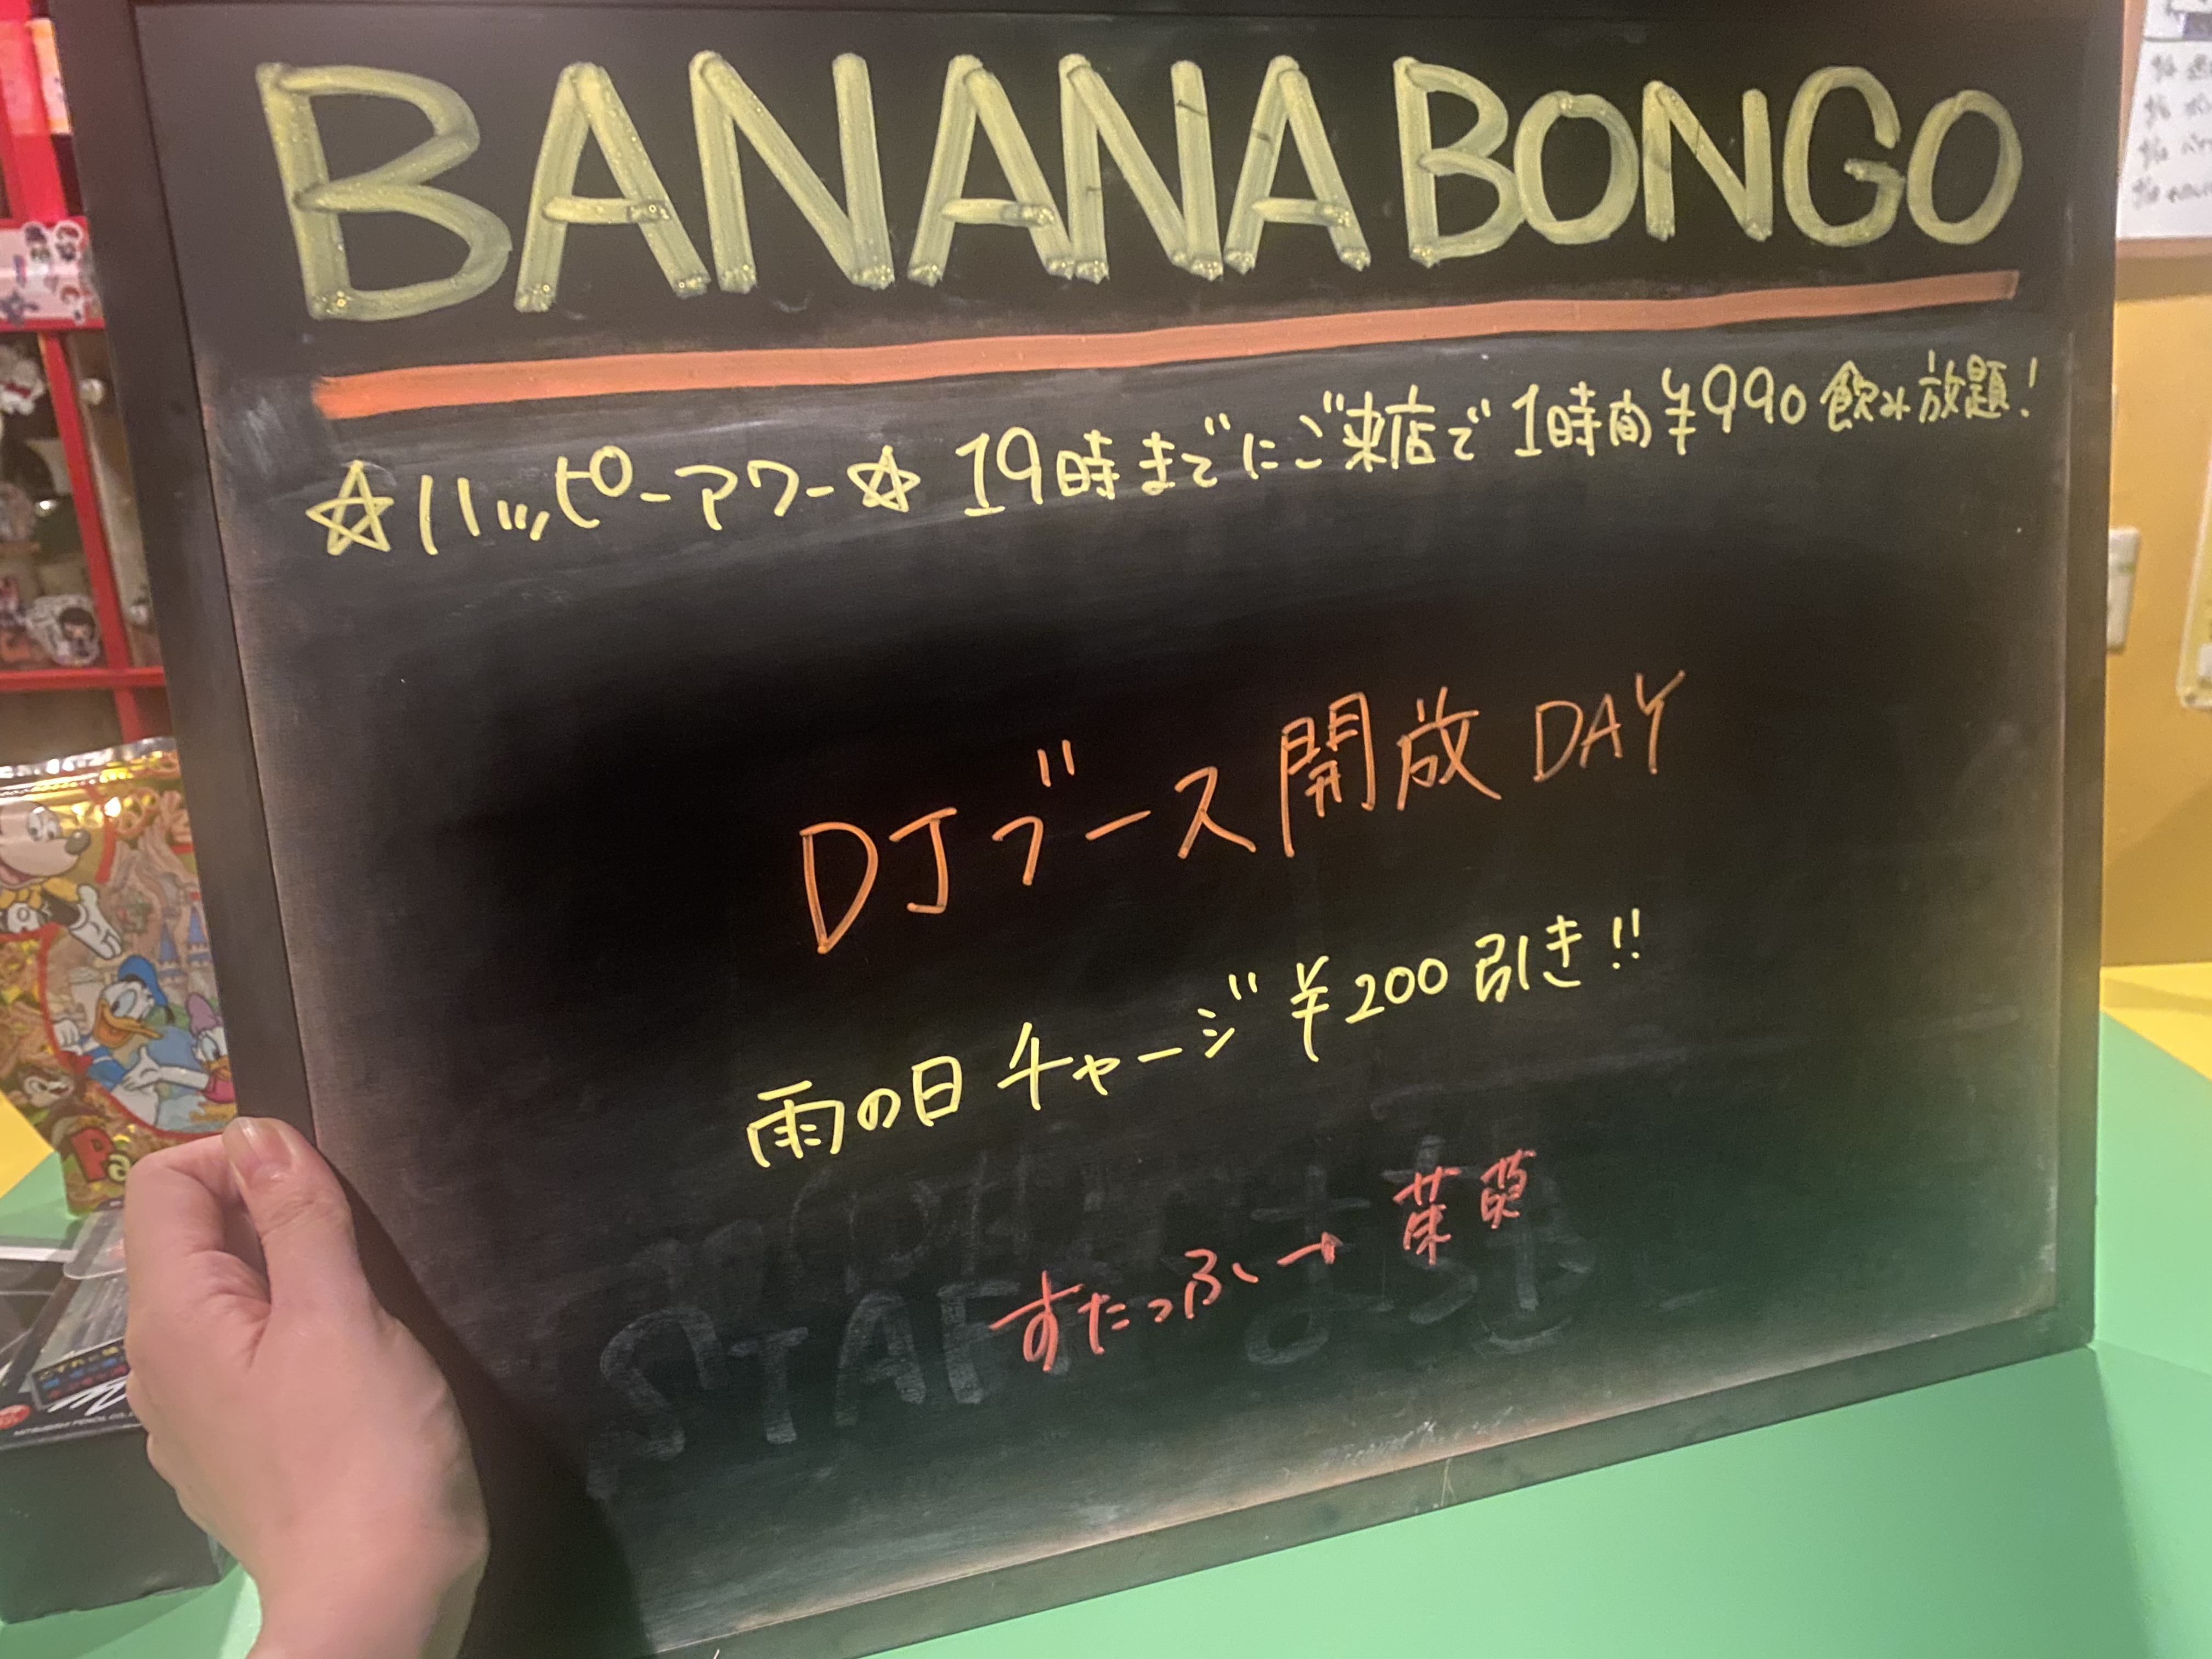 BANANA BONGO
☆ハッピーアワー☆ 19時までにご来店で 1時間 ¥990 飲み放題!
DJブース開放 DAY
雨の日 チャージ ¥200 引き!!
すたっふ→ 茱萸
STAFF